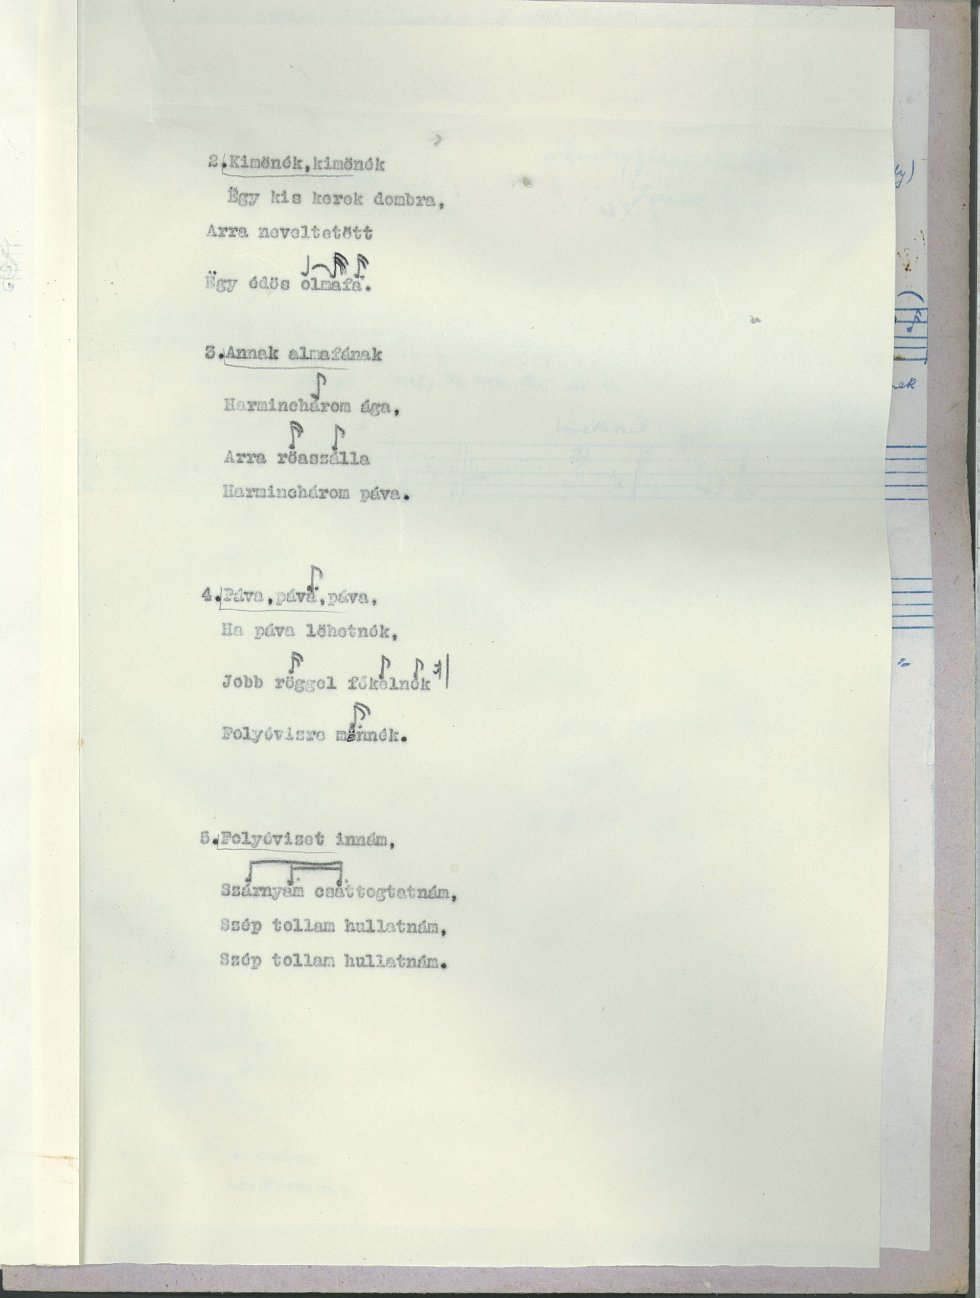 2.Kimönék,kimönék
Ëgy kis kerek dombra,
Arra neveltetött
Ëgy édös olmafa.
3.Annak almafának
Harminchárom ága,
Arra röászálla
Harminchárom páva.
4.Páva,páva,páva,
Ha páva löhetnék,
Jobb röggel fökelnék
Folyóvizre mönnék.
5.Folyóvizet innám,
Szárnyam csattogtatnám,
Szép tollam hullatnám,
Szép tollam hullatnám.